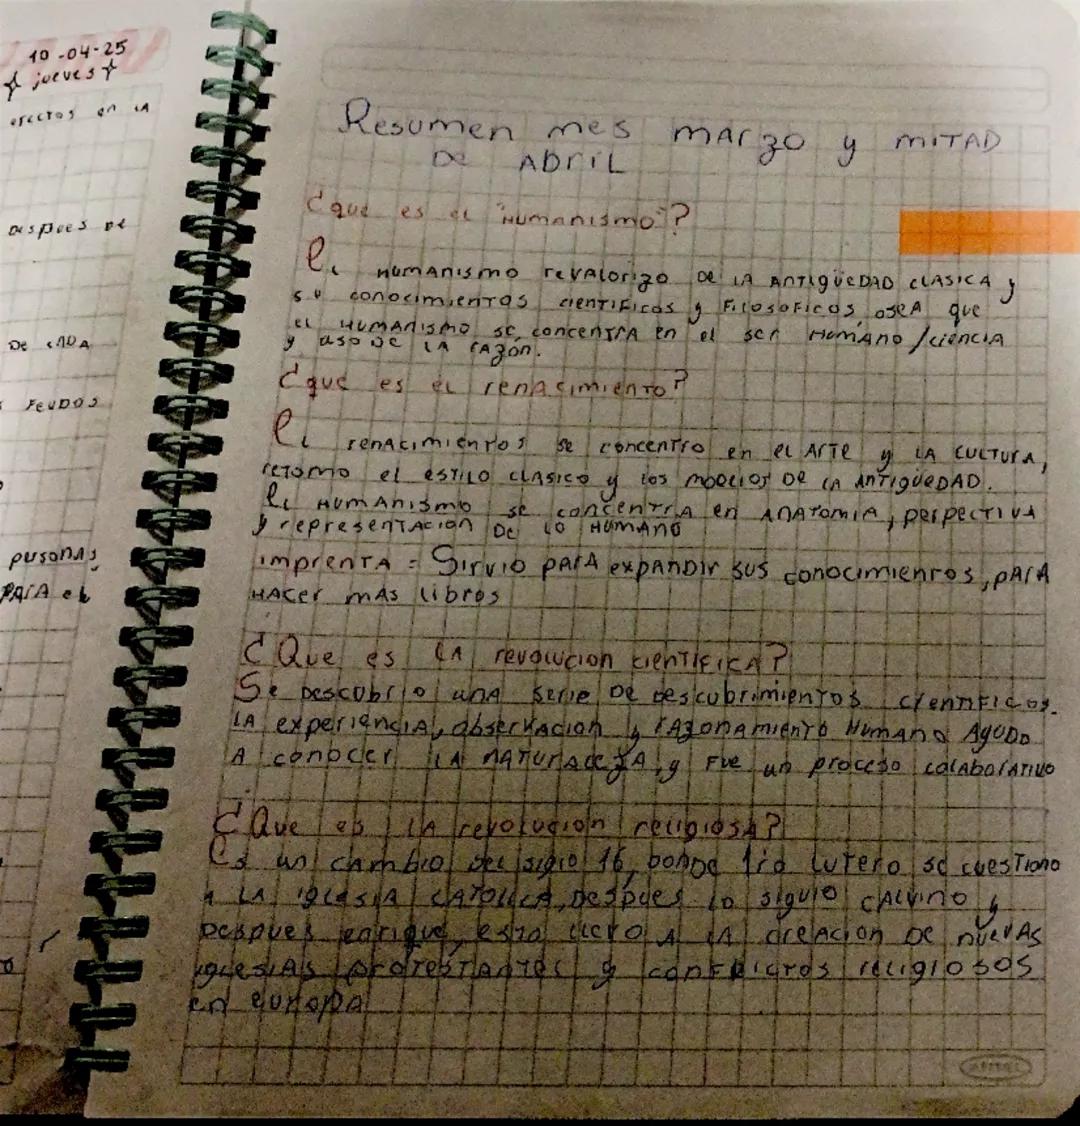 10-04-25
jueves
efectos en LA
Despues De
De cADA
FeuDos
personAs
PARA el
Resumen mes marzo y MITAD
De ABriL
¿que es el "Humanismo"?
El Humanismo revalorizo De LA ANTigüeDAD cLASicA y
su conocimientos cientificos y Filosoficos, oseA que
el HUMANismo se concentrA en el ser HumAno/ciencia
y uso De LA rAzón.
¿que es el renacimiento?
El renAcimientos se concentro en el Arte y LA cuLTurA,
retomo el estiLo cLAsico y los moDelos De LA ANTigüeDAD.
El HumAnismo se concentrA en ANATomiA, perpectivA
y representAcion De Lo HumAno
imprenTA = Sirvio pArA expAnDir sus conocimientos, pArA
HAcer mAs Libros
¿Que es LA revolucion cienTiFicA?
Se Descubrio unA serie De Descubrimientos cientificos.
LA experienciA, observAcion y rAzonAmiento HumAno AyuDo
A conocer LA nATurALezA, y Fue un proceso colAborATivo
¿Que es LA revolucion religiosA?
Es un cAmbio Del siglo 16, DonDe Lutero se cuesTiono
A LA iglesiA cATolicA, Despues lo siguio cALvino y
Despues enrique, esto llevo A LA creAcion De nuevAs
iglesiAs proTesTAntes y conflictos religiosos
en europA